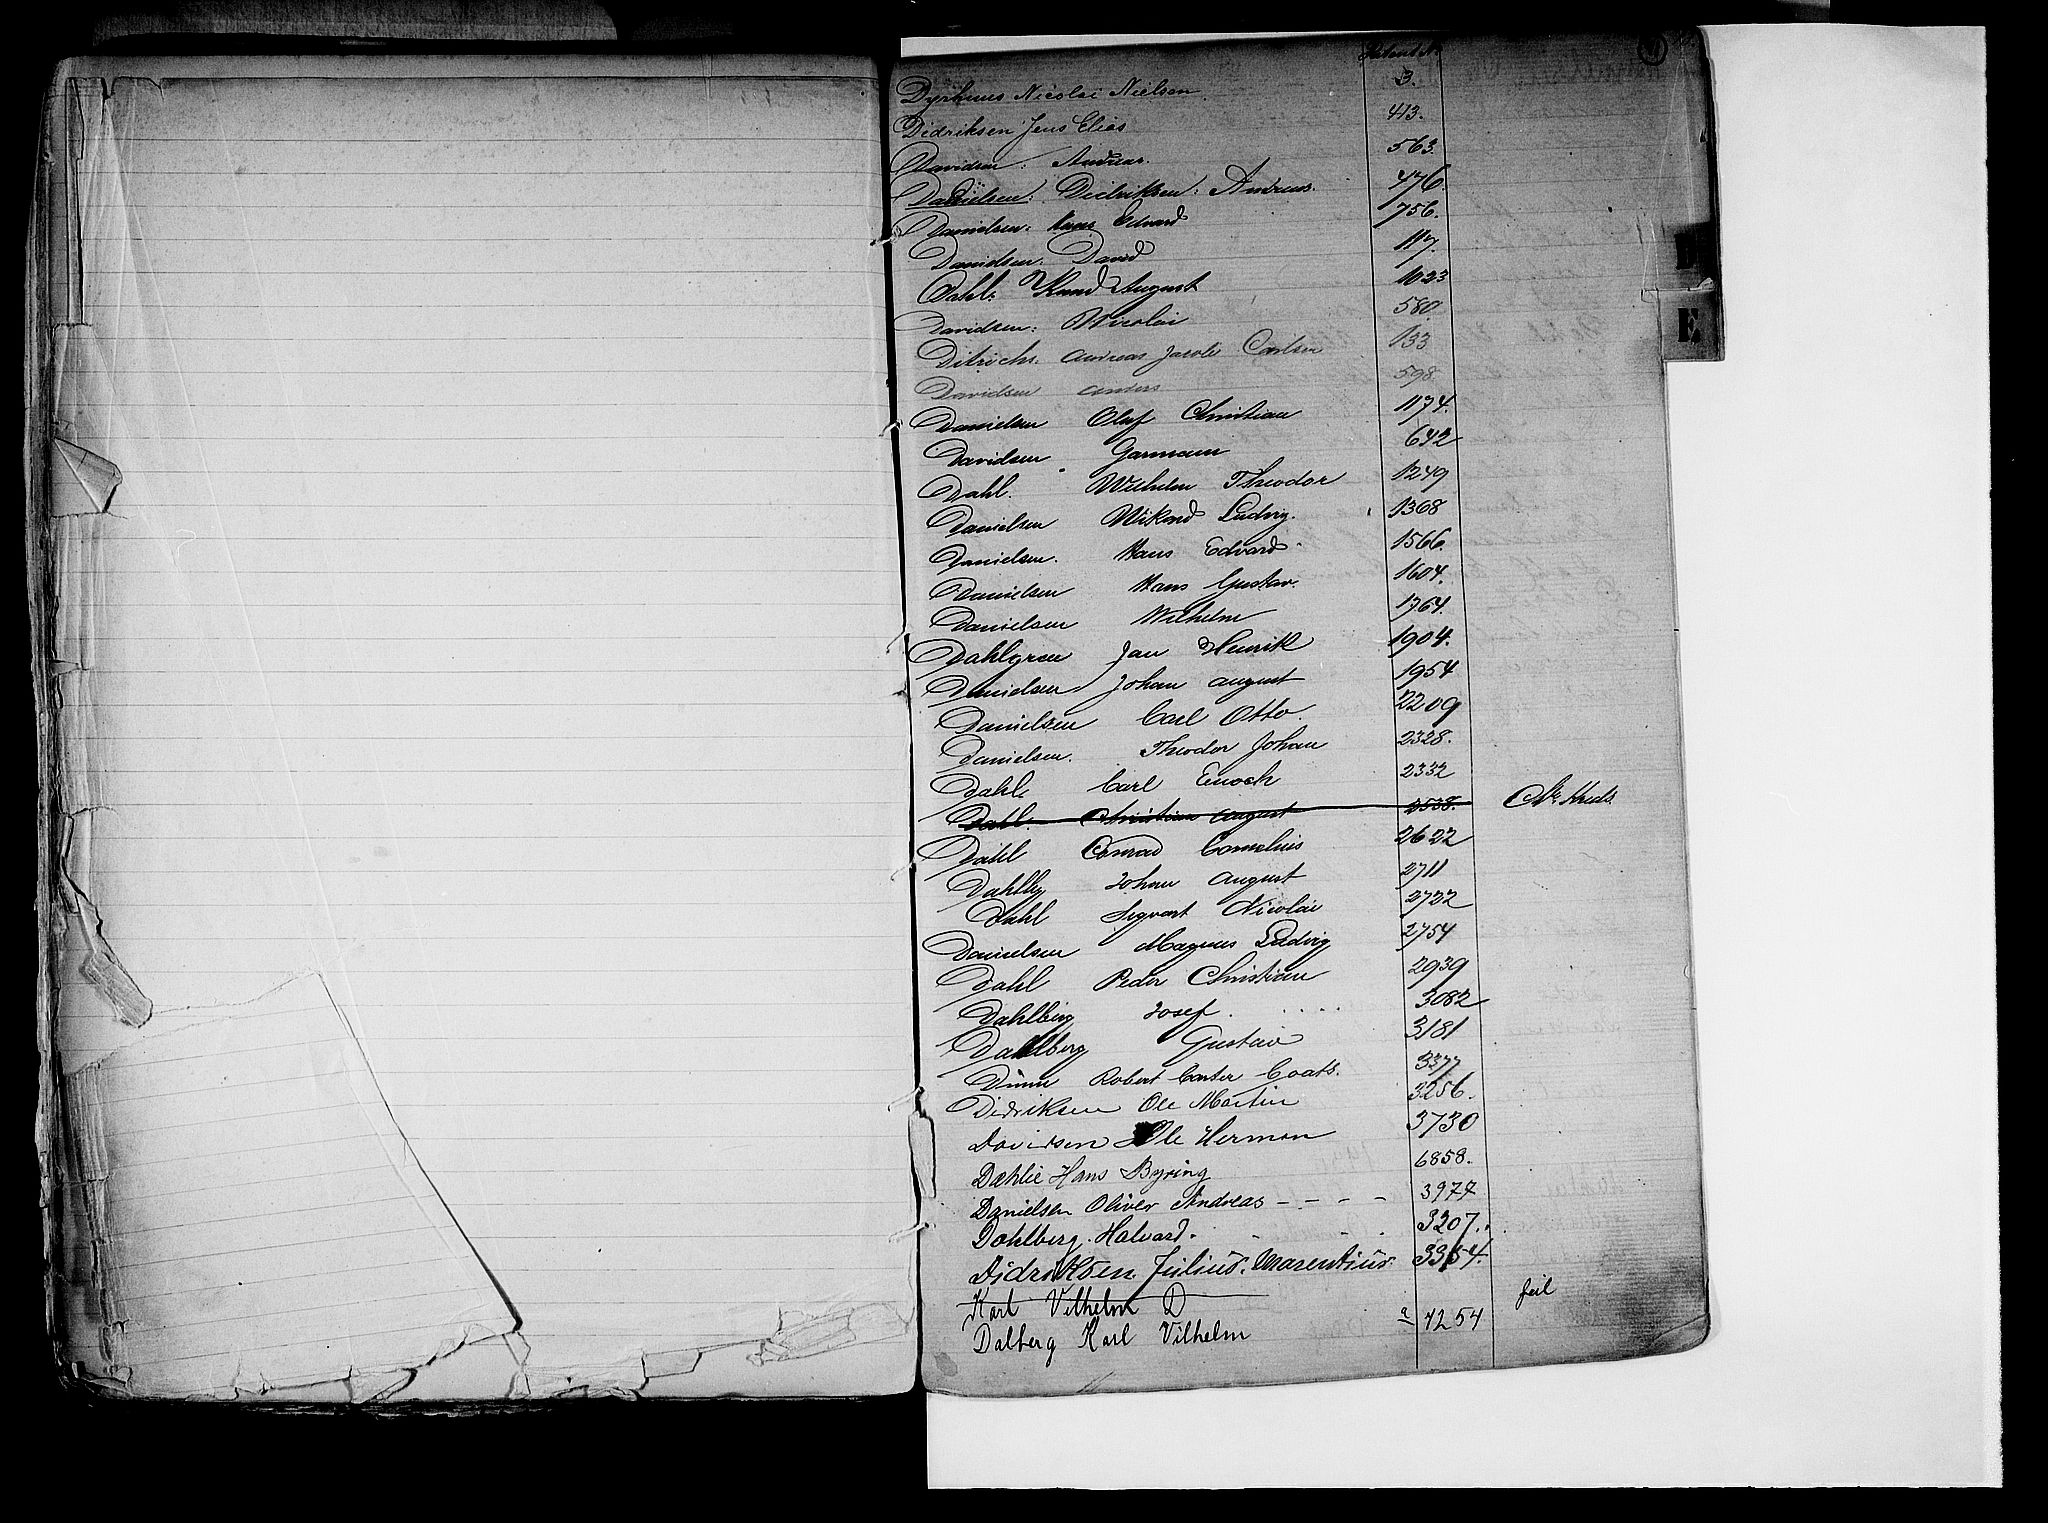 Dyrhuus Nicolai Nielsen 3.
Didriksen Jens Elias 413.
Davidsen: Andreas. 563.
Danielsen: Didriksen: Andreas. 476.
Danielsen: Hans Edvard 756.
Danielsen: David 117.
Dahl: Knud August 1023
Davidsen: Nicolai 580.
Ditrichs. Andreas Jacob Carlsen 133
Davidsen Anders 598.
Danielsen Oluf Christian 1174.
Davidsen Garmann 642
Dahl. Wilhelm Theodor 1249
Danielsen Mikand Ludvig. 1368
Danielsen. Hans Edvard 1566.
Danielsen Hans Gustav. 1604.
Danielsen Wilhelm 1764.
Dahlgren Jan Henrik 1904.
Danielsen Johan August 1954
Danielsen Carl Otto. 2209
Danielsen. Theodor Johan 2328.
Dahl. Carl Enoch 2332
Dahl. Christian August 2538.
Dahl Conrad Cornelius 2622
Dahlby Johan August 2711
Dahl Sigvart Nicolai 2722
Danielsen Magnus Ludvig 2754
Dahl Peder Christian 2939
Dahlberg Josef. . . . . 3082
Dahlberg Gustav 3181
Dünn Robert Carter Coats. 3377
Didriksen Ole Martin 3256.
Davidsen Ole Herman 3730
Dæhlie Hans Byring 6858.
Danielsen Oliver Andreas - - - - 3977
Dahlberg. Halvard. 3207.
Didriksen. Julius. Marentius. 3354.
Karl Vilhelm D feil
Dalberg Karl Vilhelm 4254
E